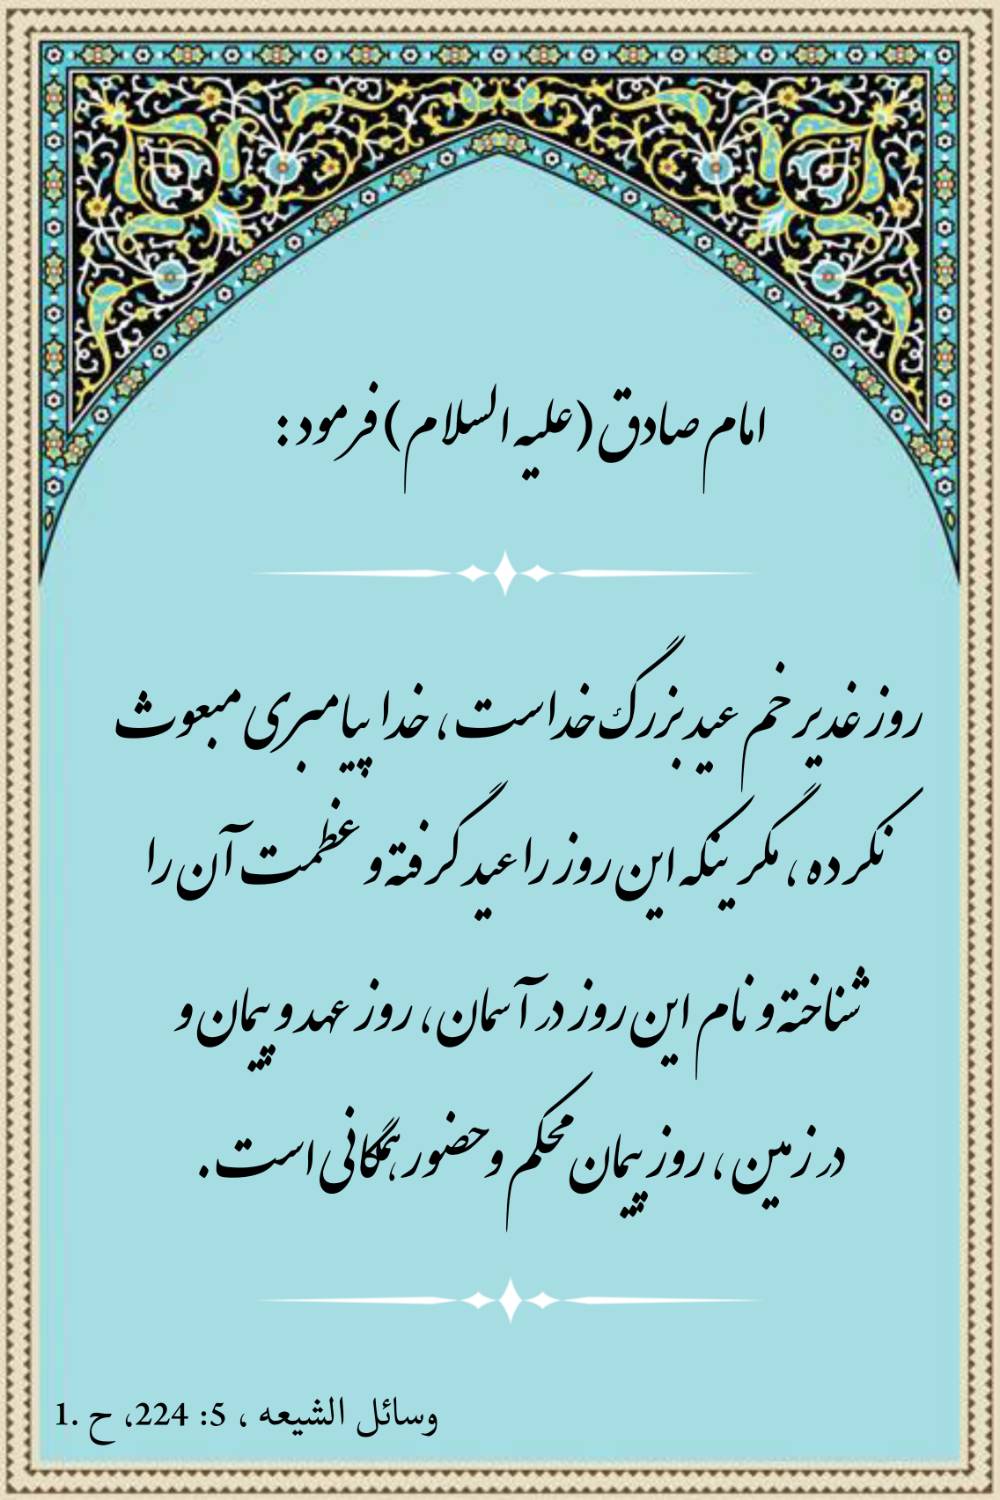 امام صادق (علیه السلام) فرمود :
روز غدیر خم عید بزرگ خداست ، خدا پیامبری مبعوث
نکرده ، مگر ینکه این روز را عید گرفته و عظمت آن را
شناخته و نام این روز در آسمان ، روز عهد و پیمان و
در زمین ، روز پیمان محکم و حضور همگانی است .
وسائل الشیعه ، 5: 224، ح .1